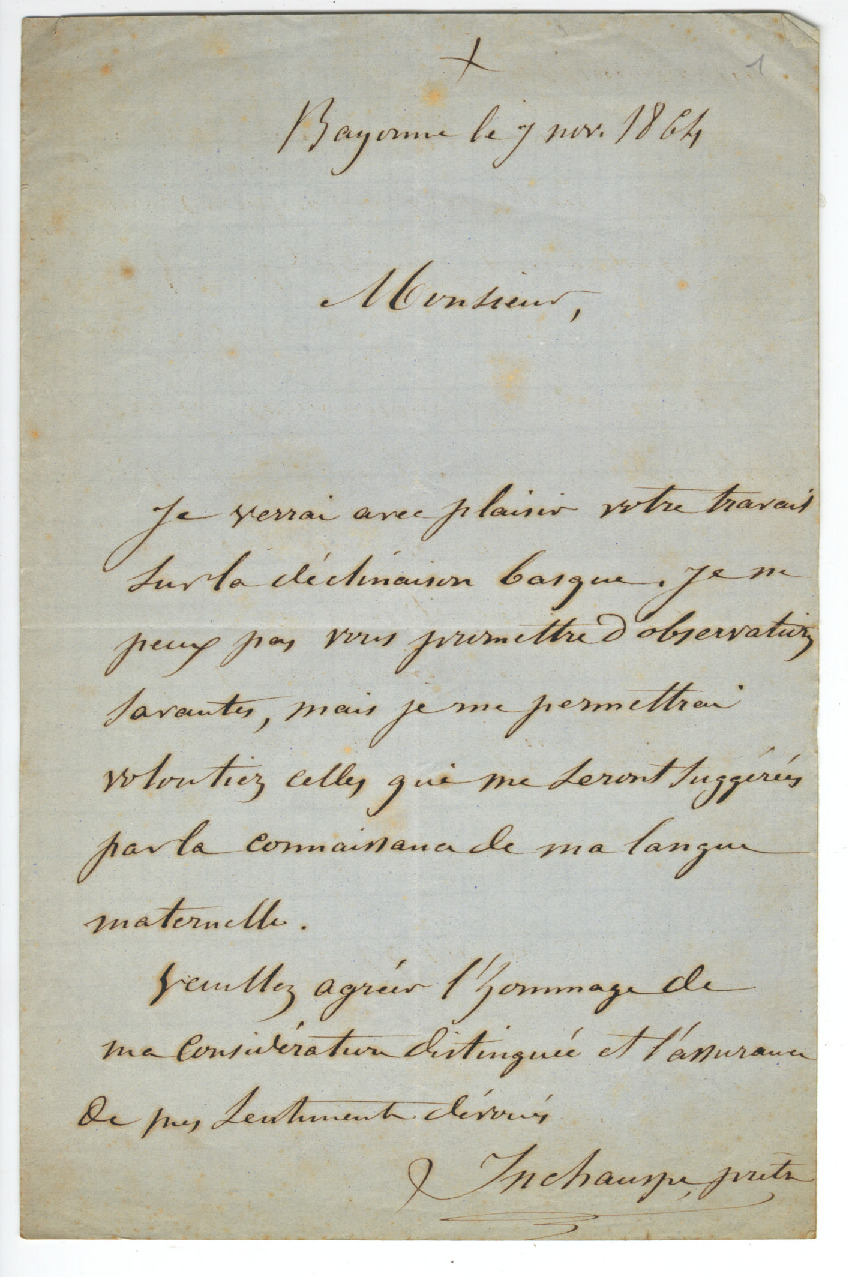 1
Bayonne le 7 nov. 1864
Monsieur,
Je verrai avec plaisir votre travail
sur la déclinaison basque. Je ne
peux pas vous promettre d'observations
savantes, mais je me permettrai
volontiers celles qui me seront suggérées
par la connaissance de ma langue
maternelle.
Veuillez agréer l'hommage de
ma considération distinguée et l'assurance
de mes sentiments dévoués
Inchauspe, prêtre